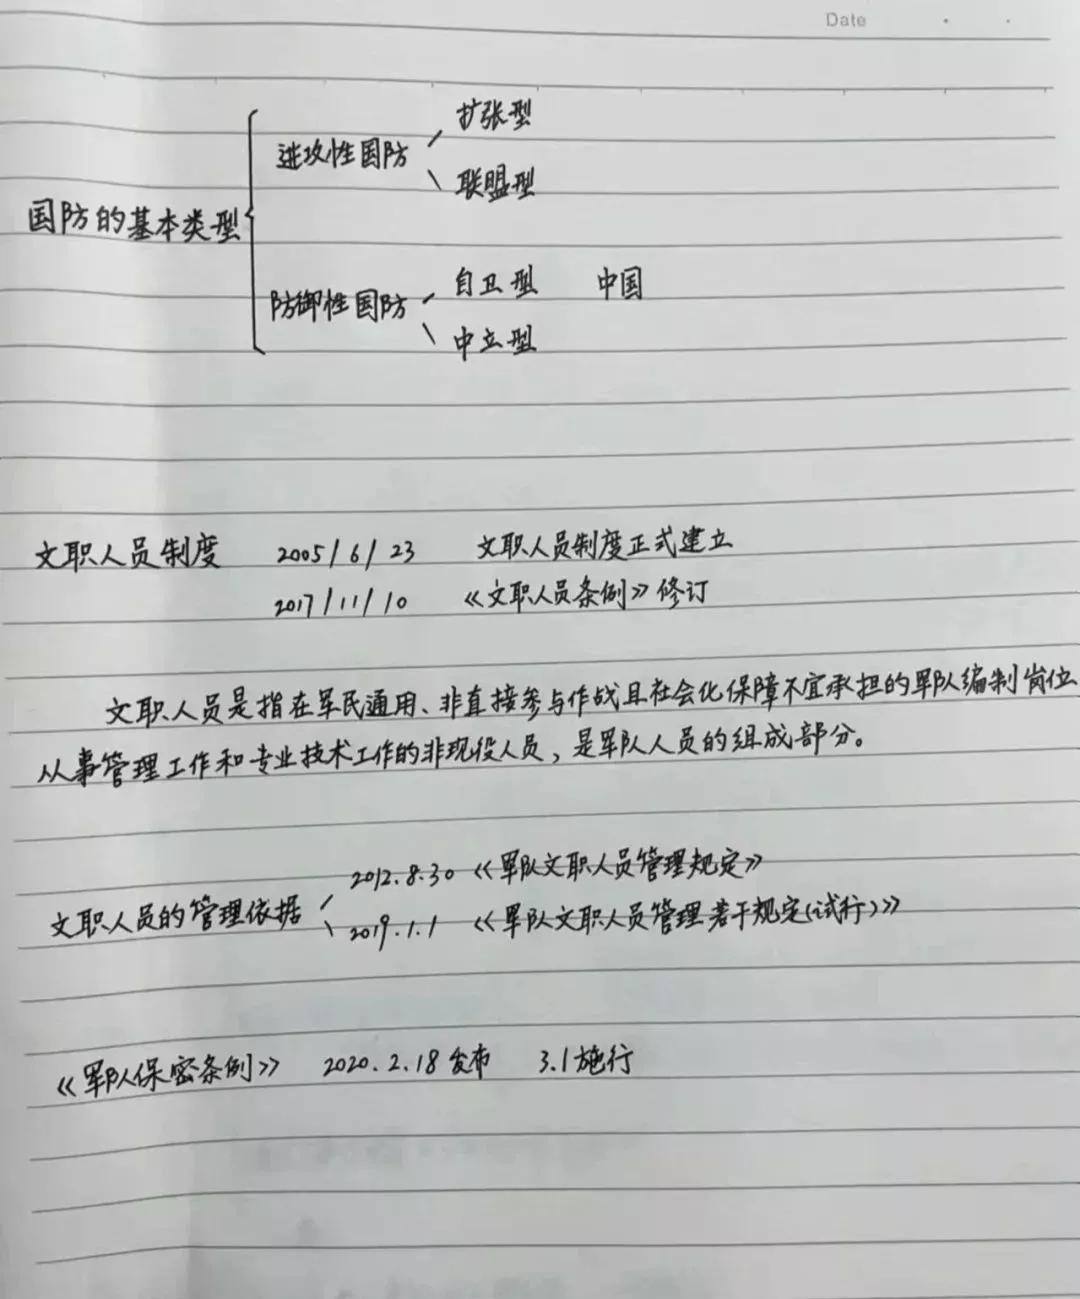 Date
扩张型
进攻性国防
联盟型
国防的基本类型
自卫型 中国
防御性国防
中立型
文职人员制度 2005/6/23 文职人员制度正式建立
2017/11/10 《文职人员条例》修订
文职人员是指在军民通用、非直接参与作战且社会化保障不宜承担的军队编制岗位
从事管理工作和专业技术工作的非现役人员,是军队人员的组成部分。
2012.8.30《军队文职人员管理规定》
文职人员的管理依据
2019.1.1 《军队文职人员管理若干规定(试行)》
《军队保密条例》 2020.2.18发布 3.1施行